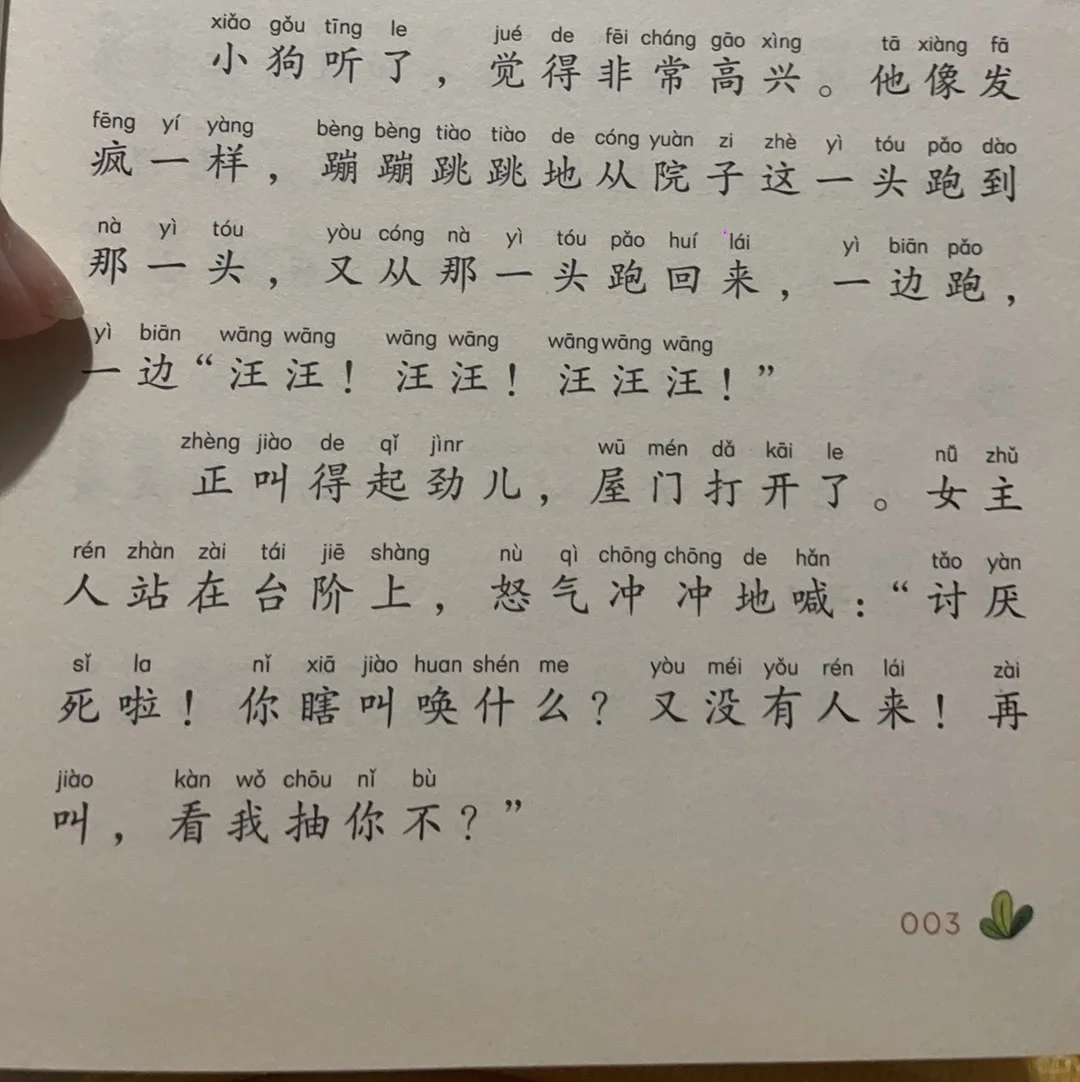 xiǎo gǒu tīng le jué de fēi cháng gāo xìng tā xiàng fā
小狗听了，觉得非常高兴。他像发
fēng yí yàng bèng bèng tiào tiào de cóng yuàn zi zhè yì tóu pǎo dào
疯一样，蹦蹦跳跳地从院子这一头跑到
nà yì tóu yòu cóng nà yì tóu pǎo huí lái yì biān pǎo
那一头，又从那一头跑回来，一边跑，
yì biān wāng wāng wāng wāng wāng wāng wāng
一边“汪汪！汪汪！汪汪汪！”
zhèng jiào de qǐ jìnr wū mén dǎ kāi le nǚ zhǔ
正叫得起劲儿，屋门打开了。女主
rén zhàn zài tái jiē shàng nù qì chōng chōng de hǎn tǎo yàn
人站在台阶上，怒气冲冲地喊：“讨厌
sǐ la nǐ xiā jiào huan shén me yòu méi yǒu rén lái zài
死啦！你瞎叫唤什么？又没有人来！再
jiào kàn wǒ chōu nǐ bù
叫，看我抽你不？”
003